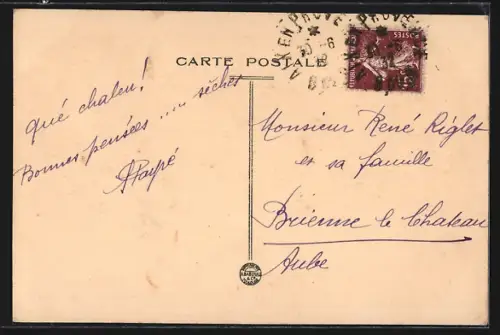 CARTE POSTALE
AIX EN PROVENCE
30 -6
POSTES
Qué chaleu !
Bonnes pensées .... sèches
Monsieur René Riglet
et sa famille
Brienne le Chateau
Aube